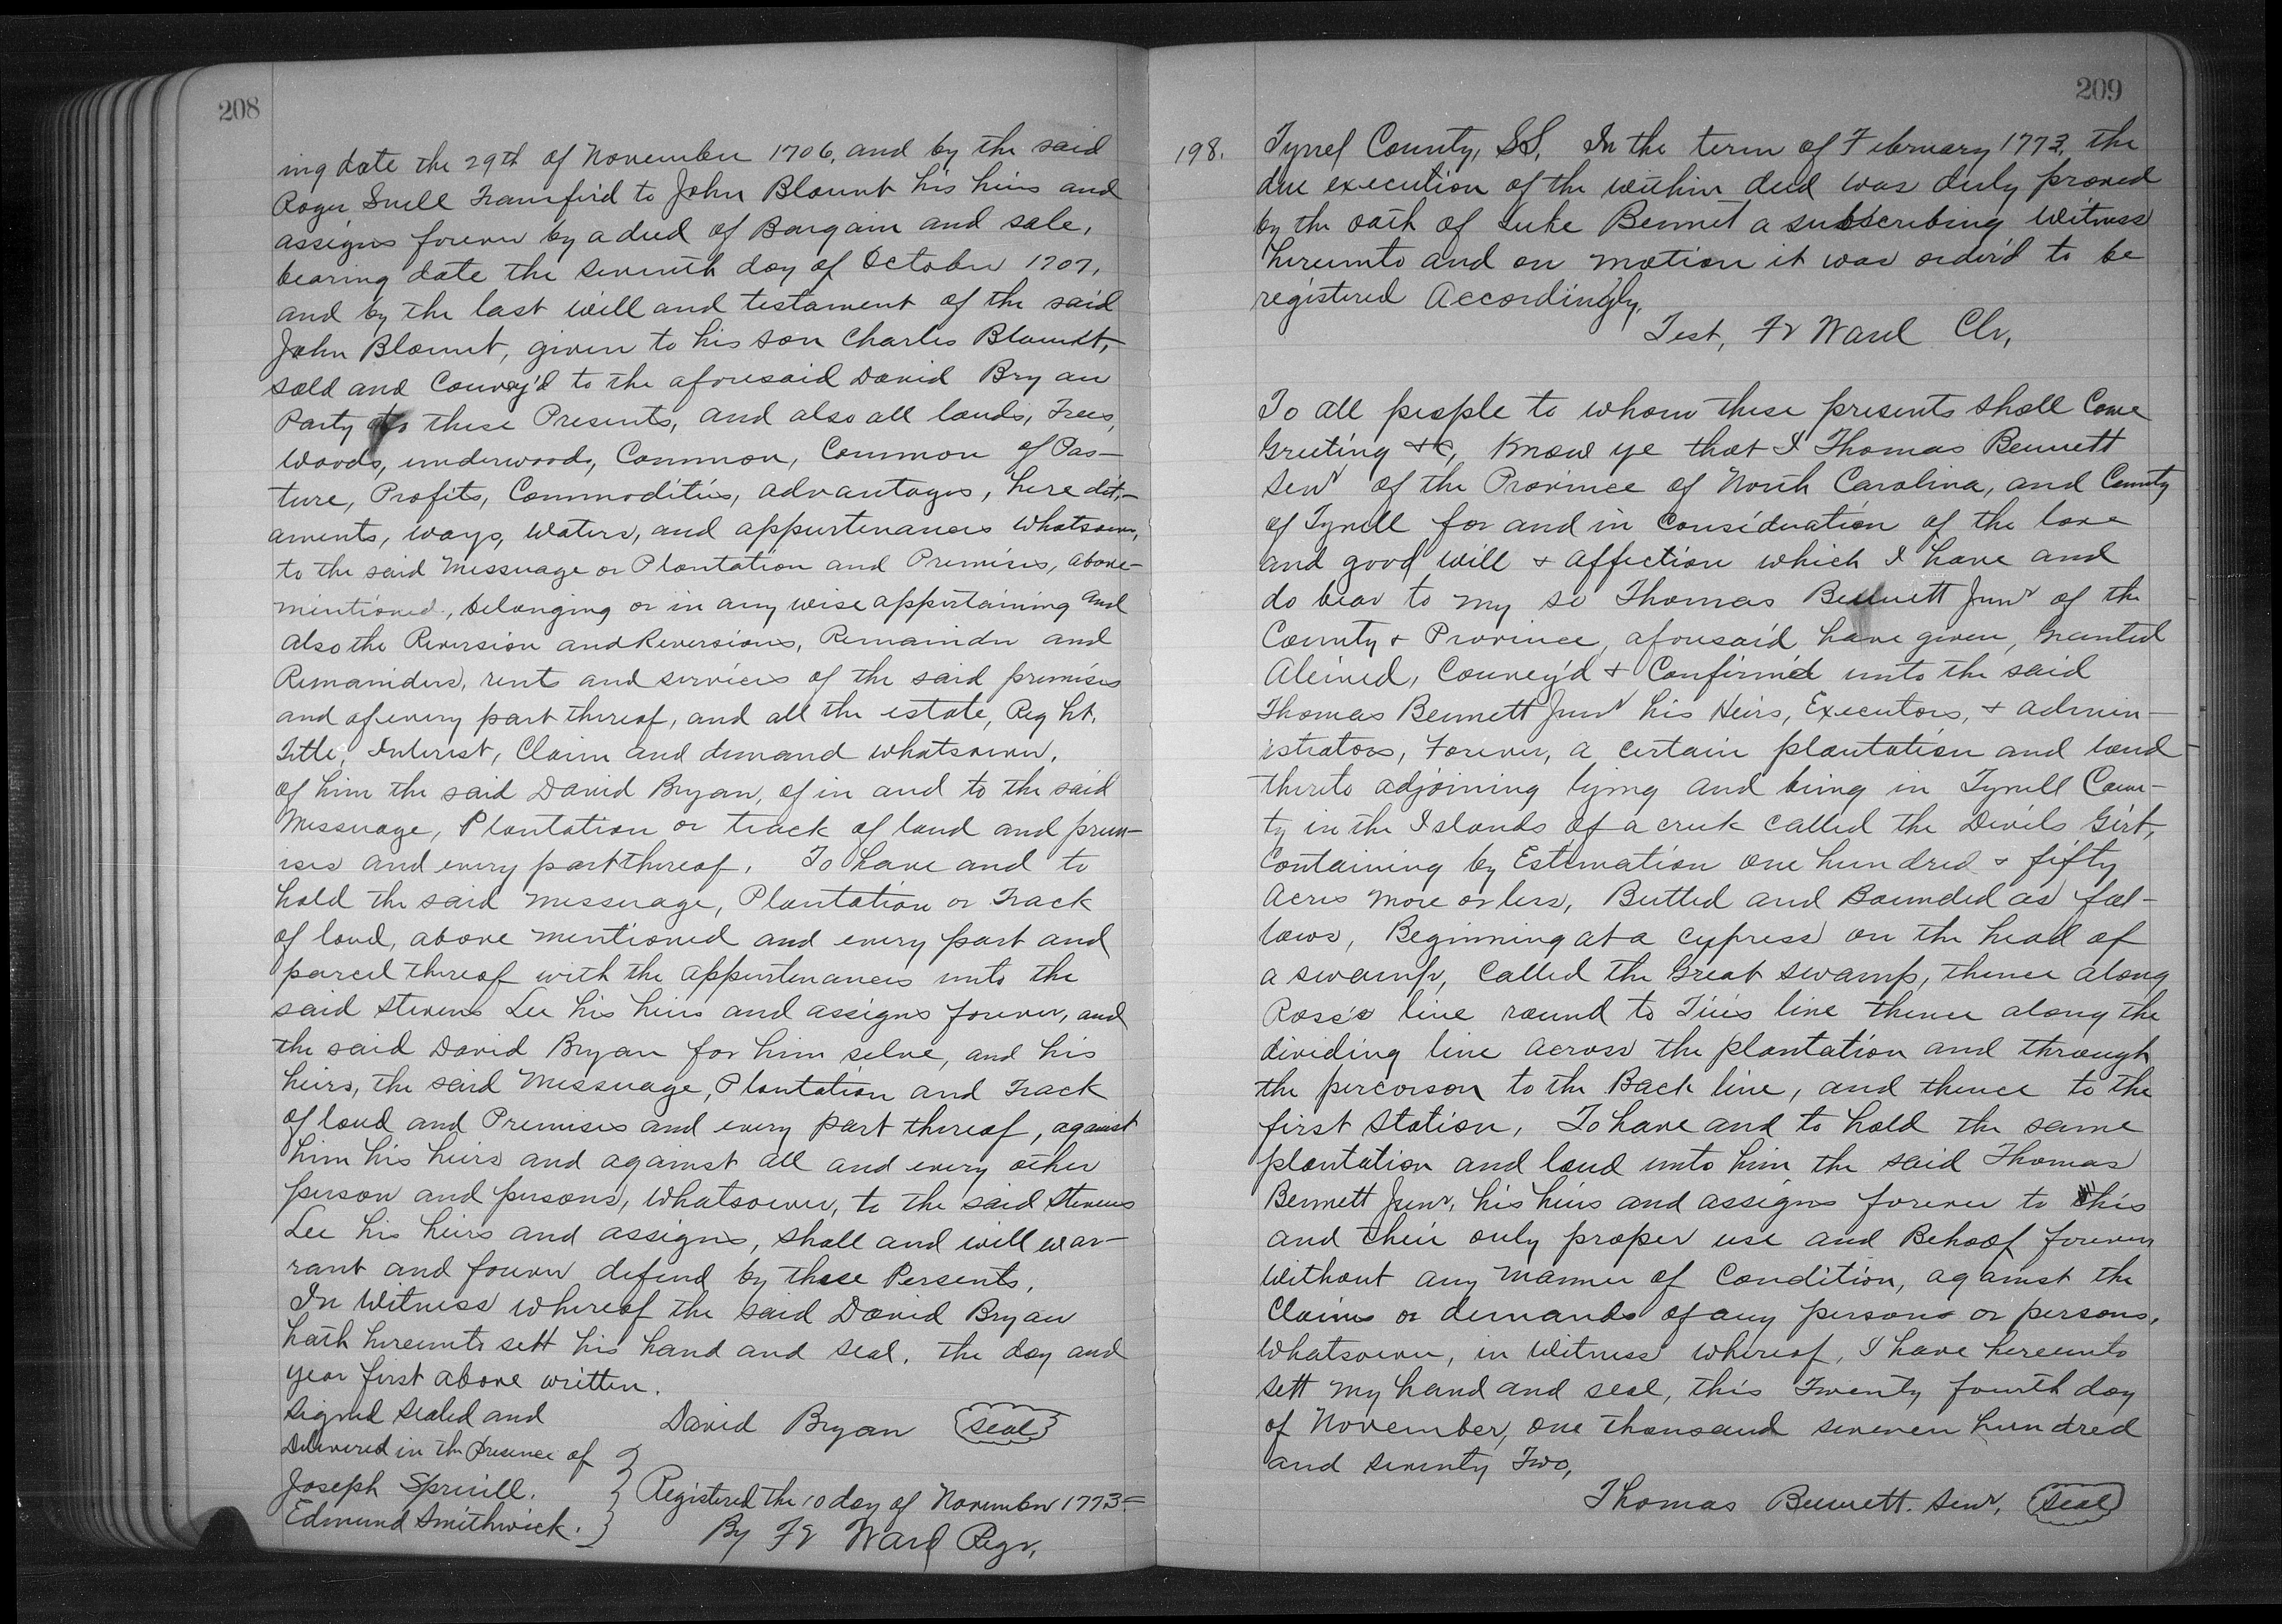 208
ing date the 29th of November 1706, and by the said
Roger Snell Transfird to John Blount his heirs and
assigns forever by a deed of Bargain and sale,
bearing date the seventh day of October 1707,
and by the last will and testament of the said
John Blount, given to his son Charles Bloundt,
sold and Convey'd to the aforesaid David Bryan
Party to these Presents, and also all lands, Trees,
woods, underwoods, Common, Common of Pas-
ture, Profits, Commodities, advantages, heredit-
aments, ways, waters, and appurtenances whatsoever,
to the said Messuage or Plantation and Premises, above-
mentioned, belonging or in any wise appertaining and
also the Reversion and Reversions, Remainder and
Remainders, rents and services of the said premises
and of every part thereof, and all the estate, Reght,
Title, Interest, Claim and demand whatsoever,
of him the said David Bryan, of in and to the said
Messuage, Plantation or track of land and prem-
ises and every part thereof. To have and to
hold the said messuage, Plantation or Track
of land, above mentioned and every part and
parcel thereof with the appurtenances unto the
said Stevens Lee his heirs and assigns forever, and
the said David Bryan for him selve, and his
heirs, the said Messuage, Plantation and Track
of land and Premises and every part thereof, against
him his heirs and against all and every other
person and persons, whatsoever, to the said Stevens
Lee his heirs and assigns, shall and will war-
rant and forever defend by these Persents.
In Witness whereof the said David Bryan
hath hereunto sett his hand and seal, the day and
year first above written.
Signed sealed and
Delivered in the Presence of
David Bryan seal
Joseph Spruill.
Edmund Smithwick.
Registered the 10 day of November 1773=
By Fr Ward Regr,
209
198. Tyrrel County, SS, In the term of February 1773, the
due execution of the within deed was duly proved
by the oath of Luke Bennet a subscribing witness
hereunto and on motion it was order'd to be
registered Accordingly,
Test, Fr Ward Clr,
To all people to whom these presents shall Come
Greeting &c, Know ye that I Thomas Bennett
Senr of the Province of North Carolina, and County
of Tyrrell for and in Consideration of the love
and good will & affection which I have and
do bear to my so Thomas Bennett Junr of the
County & Province, aforesaid have given, Granted
Aleined, Convey'd & Confirmed unto the said
Thomas Bennett Junr his Heirs, Executors, & admin-
istrators, Forever, a certain plantation and land
thereto adjoining lying and being in Tyrrell Coun-
ty in the Islands of a creek called the Devils Girt,
Containing by Estimation one hundred & fifty
Acres more or less, Butted and Bounded as fol-
lows, Beginning at a cypress on the head of
a swamp, Called the Great swamp, thence along
Rose's line round to Tiies line thence along the
dividing line across the plantation and through
the percorson to the Back line, and thence to the
first Station, To have and to hold the same
plantation and land unto him the said Thomas
Bennett Junr, his heirs and assigns forever to his
and their only proper use and Behoof forever
without any manner of Condition, against the
Claims or demands of any persons or persons,
whatsoever, in Witness whereof, I have hereunto
sett my hand and seal, this Twenty fourth day
of November, one thousand seveven hundred
and seventy Two,
Thomas Bennett. Senr, seal